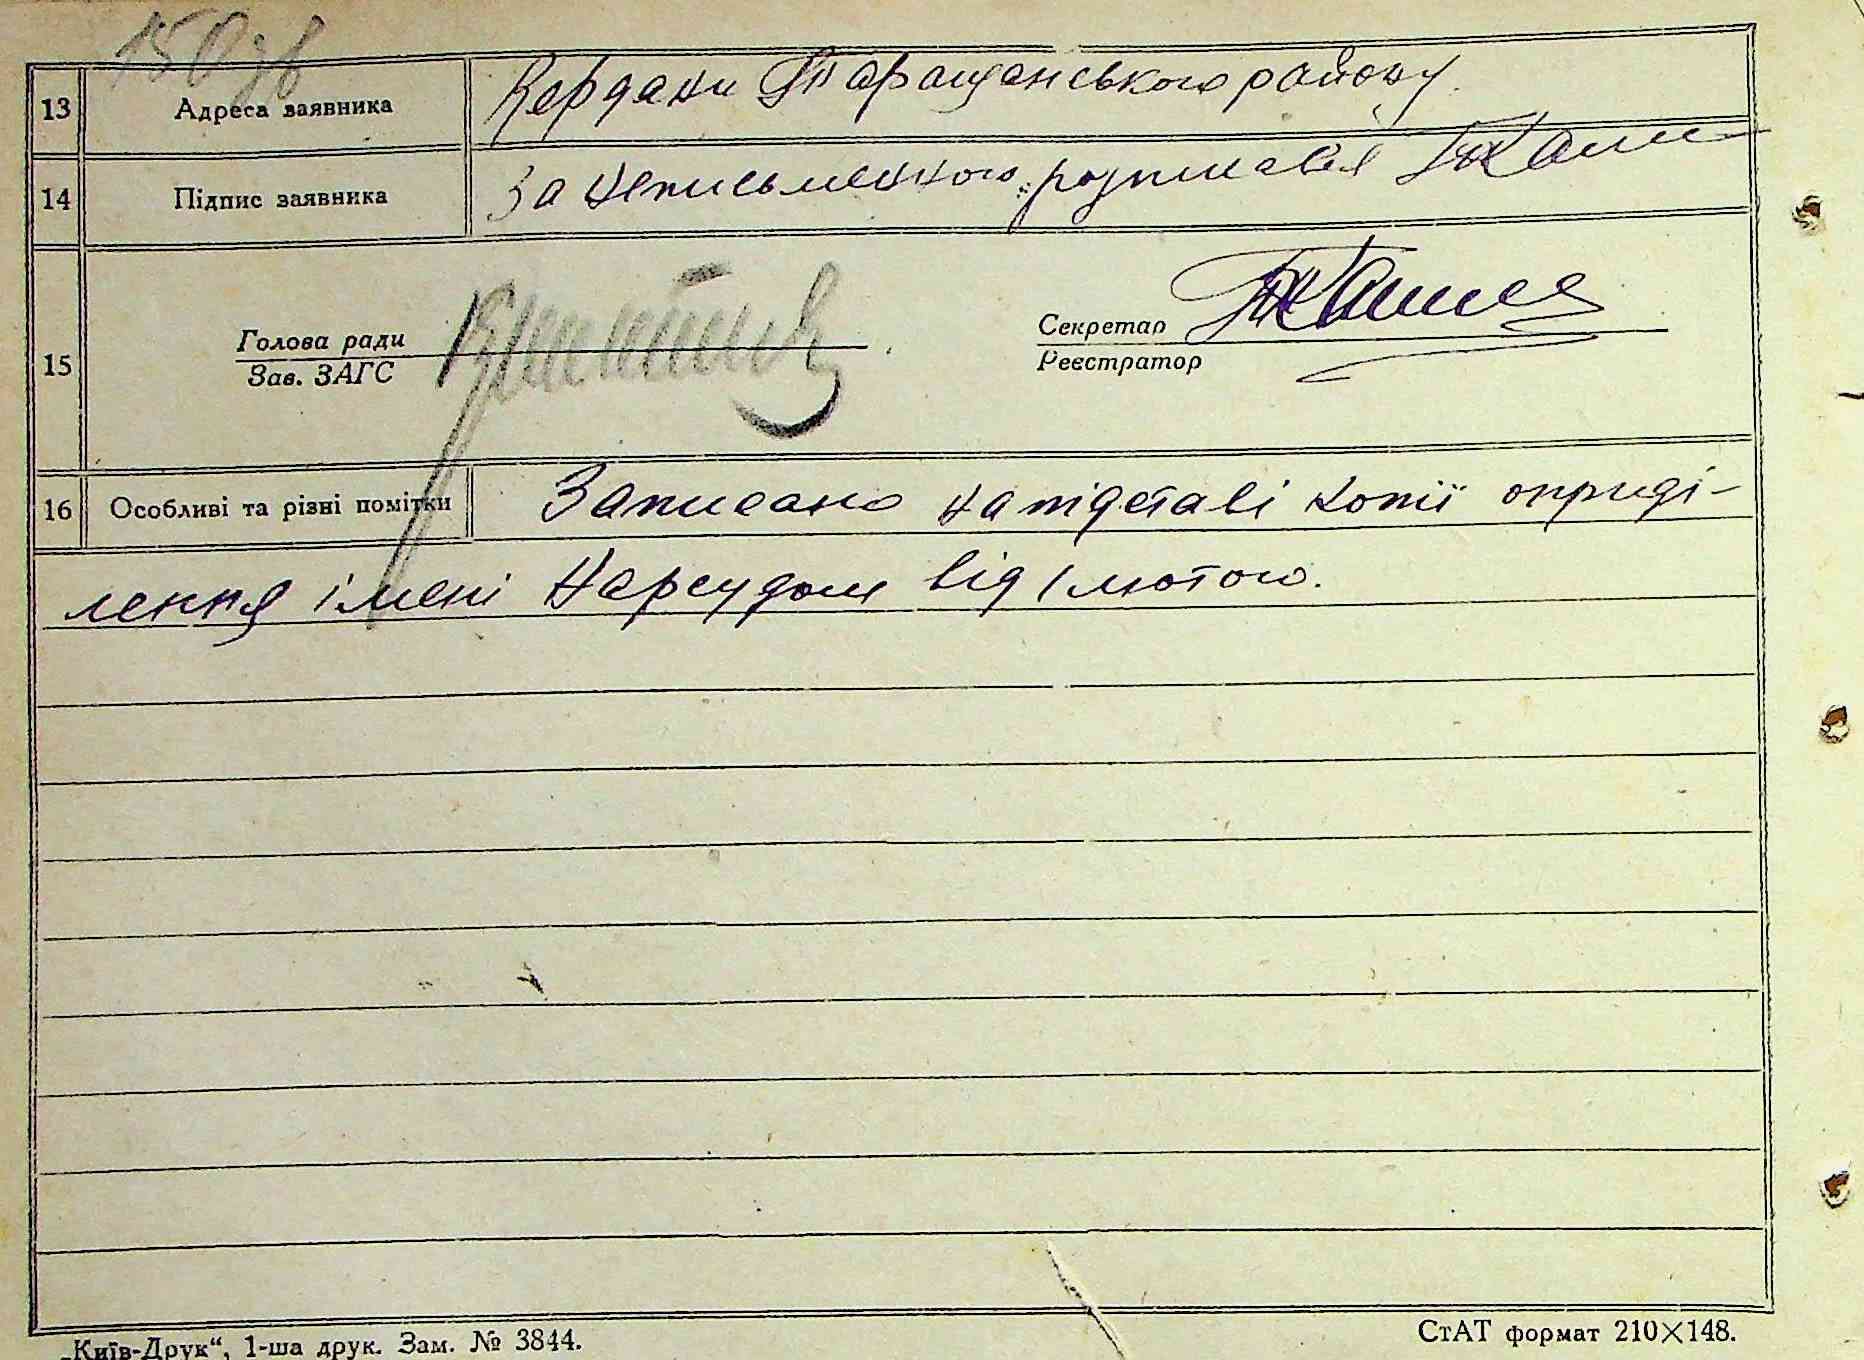 150 зв
13 Адреса заявника Кердани Таращанського району.
14 Підпис заявника За неписьменного розписався
15 Голова ради Секретар
Зав. ЗАГС Реєстратор
16 Особливі та різні помітки Записано на підставі копії оприді-
лення імені Нарсудом від 1 лютого.
„Київ-Друк“, 1-ша друк. Зам. № 3844. СтАТ формат 210×148.